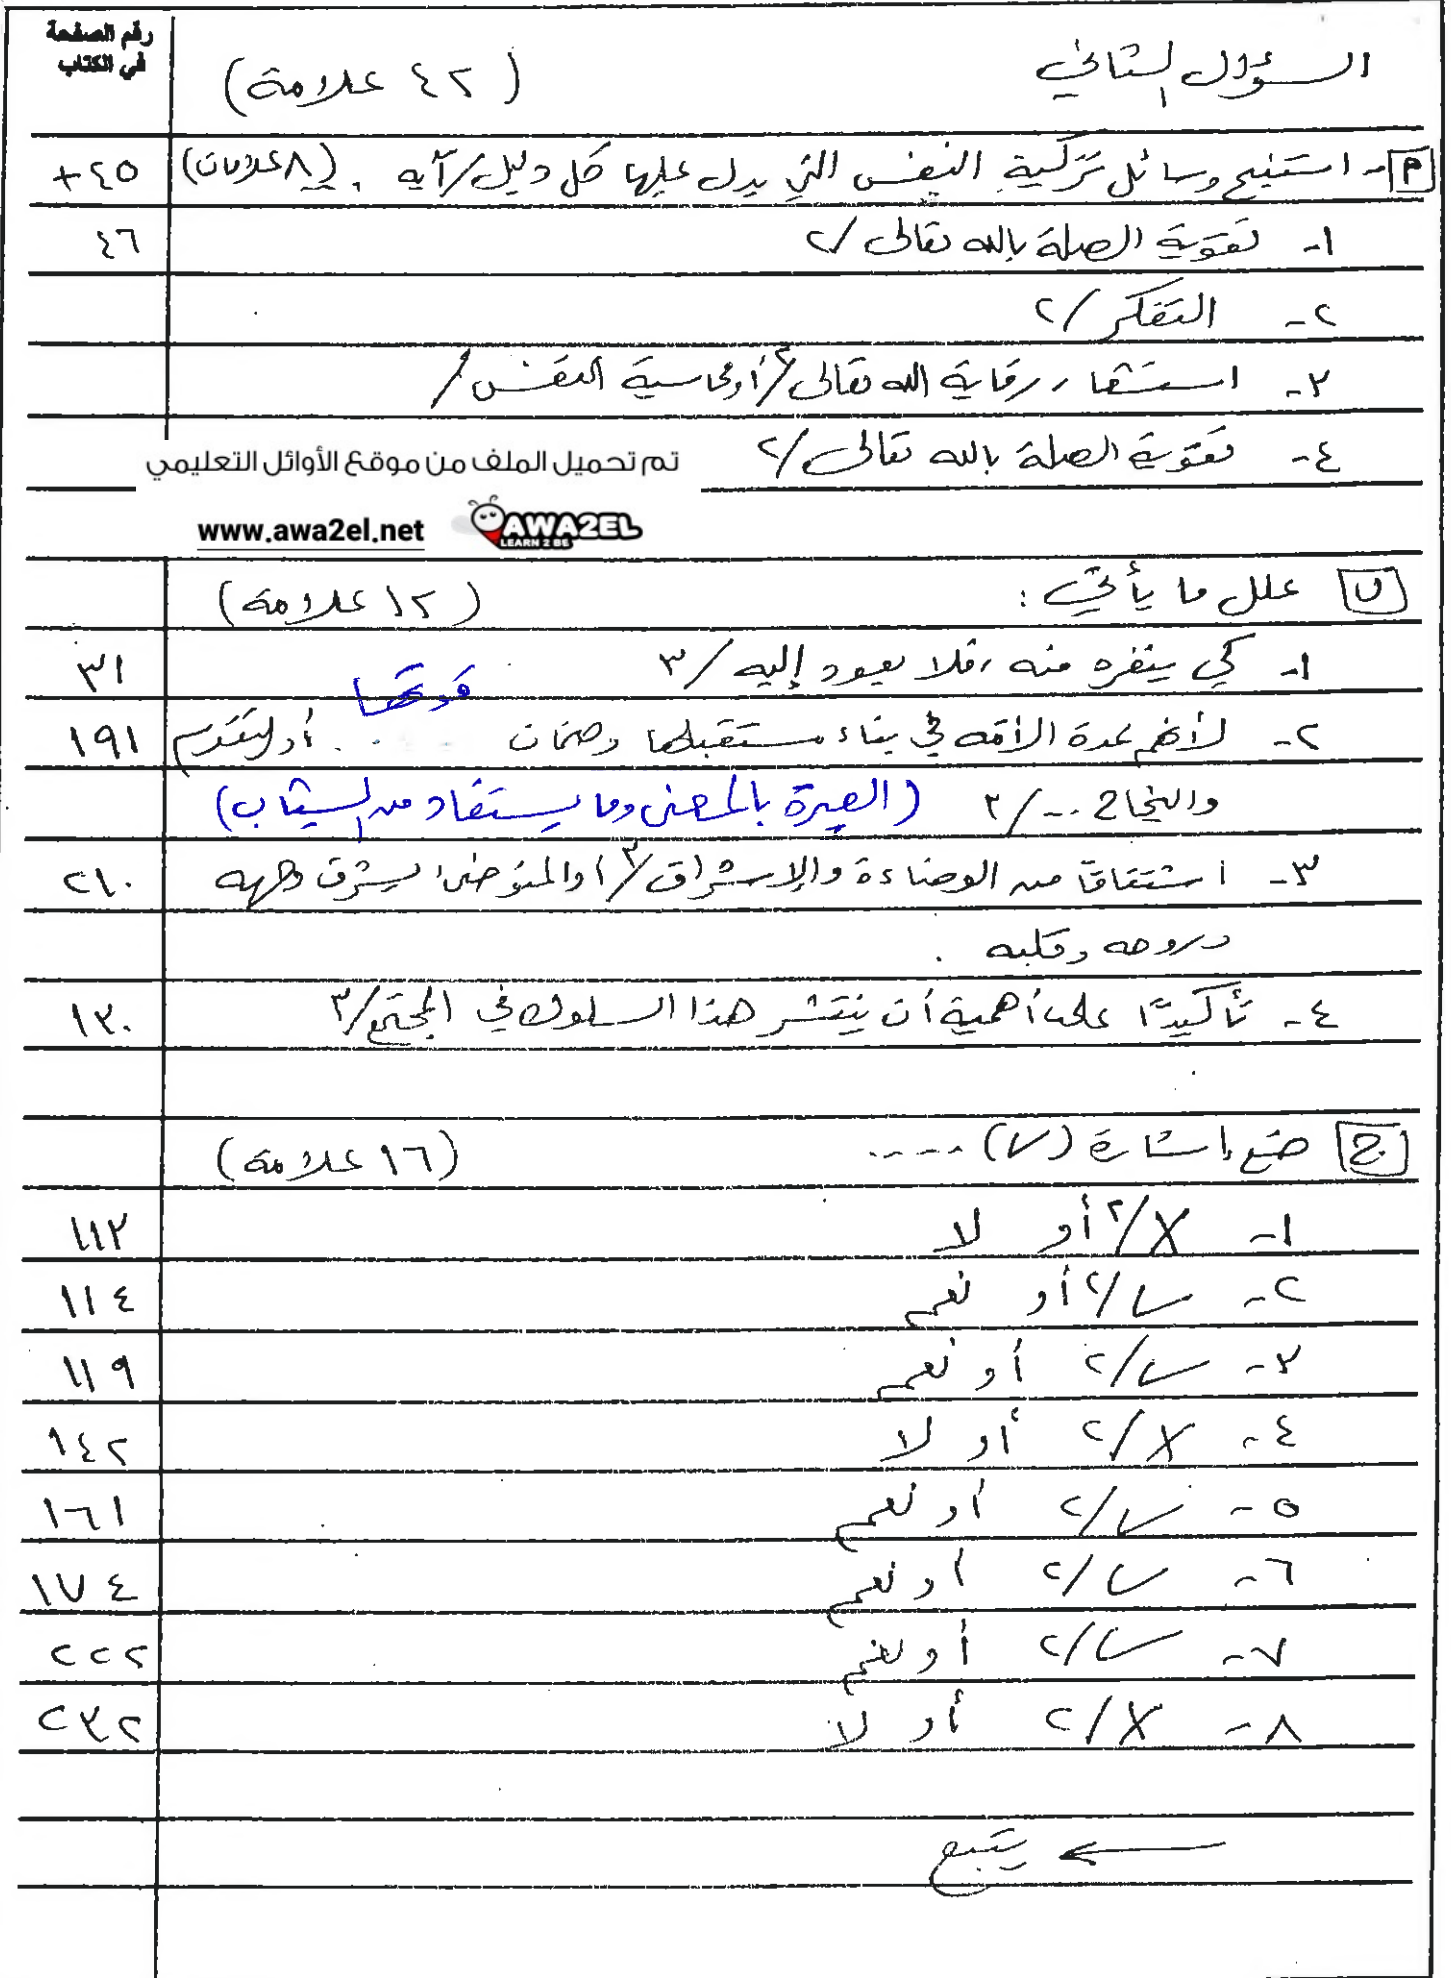 رقم الصفحة
في الكتاب
السؤال الثاني (٤٢ علامة)
أ- استنتج وسائل تزكية النفس التي يدل عليها كل دليل/آية . (٨ علامات) ٤٥+
١- تقوية الصلة بالله تعالى /٢ ٤٦
٢- التفكر /٢
٣- استشعار رقابة الله تعالى /٢ أو محاسبة النفس /
٤- تقوية الصلة بالله تعالى /٢
تم تحميل الملف من موقع الأوائل التعليمي
www.awa2el.net AWA2EL
LEARN 2 BE
ب علل ما يأتي : (١٢ علامة)
١- كي ينفره منه ، فلا يعود إليه /٣ ٣١
٢- لأنهم عدة الأمة في بناء مستقبلها وضمان قوتها أو لتقدم ١٩١
والنجاح ... /٣ (العبرة بالمعنى وما يستفاد من الشباب)
٣- اشتقاقًا من الوضاءة والإشراق /٣ أو المتوضئ يشرق وجهه ٢١٠
وروحه وقلبه .
٤- تأكيدًا على أهمية أن ينتشر هذا السلوك في المجتمع /٣ ١٣٠
ج ضع إشارة (✓) .....  (١٦ علامة)
١- X /٢ أو لا ١١٣
٢- ✓ /٢ أو نعم ١١٤
٣- ✓ /٢ أو نعم ١١٩
٤- X /٢ أو لا ١٤٢
٥- ✓ /٢ أو نعم ١٦١
٦- ✓ /٢ أو نعم ١٧٤
٧- ✓ /٢ أو نعم ٢٢٢
٨- X /٢ أو لا ٢٣٢
← يتبع